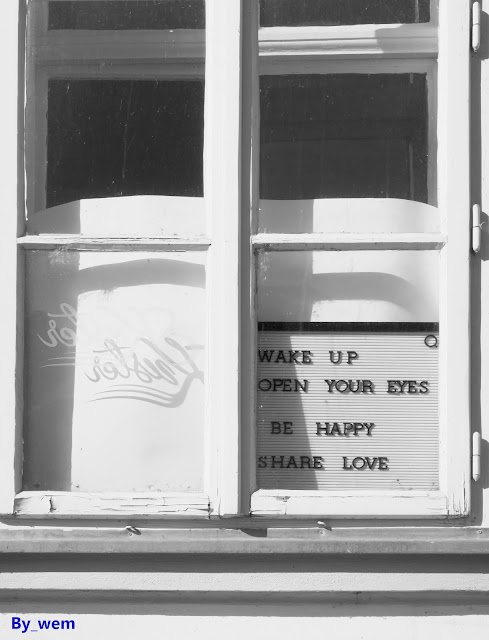 Q
WAKE UP
OPEN YOUR EYES
BE HAPPY
SHARE LOVE
By_wem